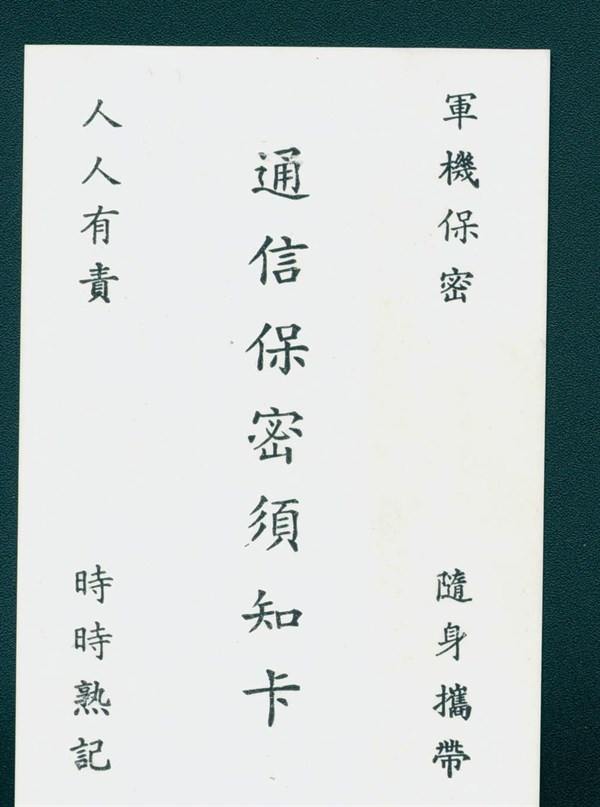 軍機保密
隨身攜帶
通信保密須知卡
人人有責
時時熟記